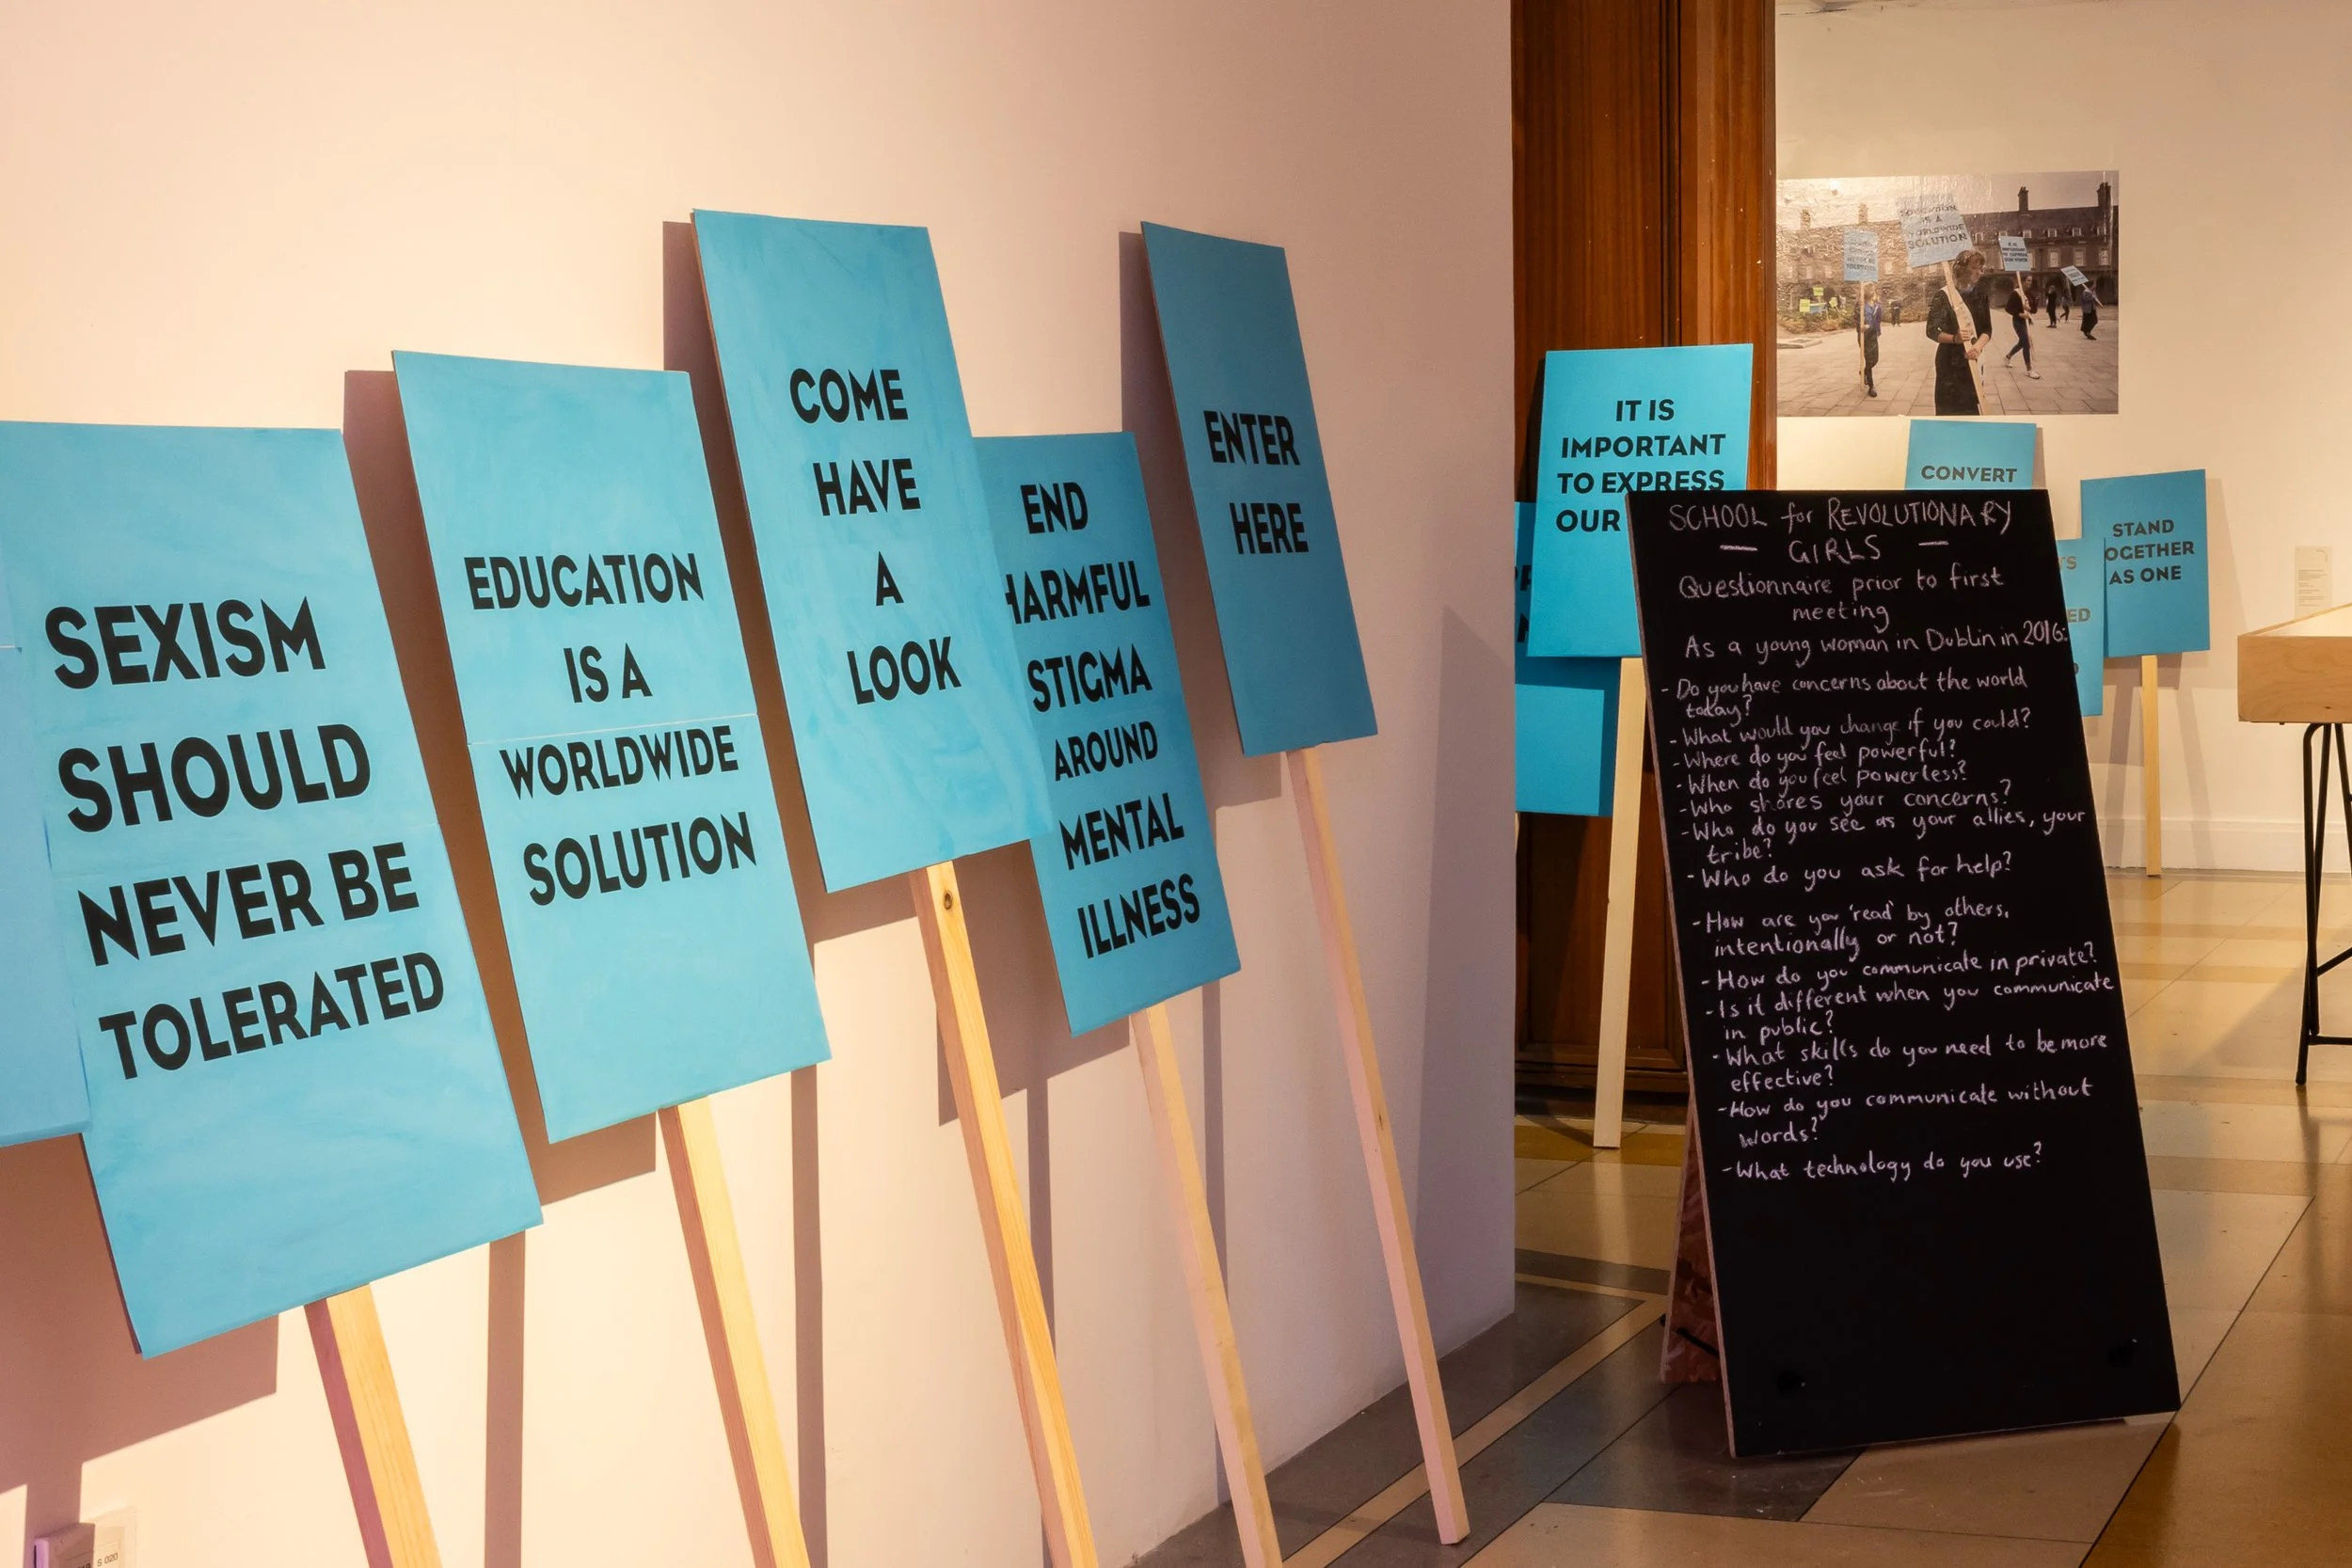 SEXISM
SHOULD
NEVER BE
TOLERATED
EDUCATION
IS A
WORLDWIDE
SOLUTION
COME
HAVE
A
LOOK
END
HARMFUL
STIGMA
AROUND
MENTAL
ILLNESS
ENTER
HERE
IT IS
IMPORTANT
TO EXPRESS
OUR
SCHOOL for REVOLUTIONARY
— GIRLS —
Questionnaire prior to first
meeting
As a young woman in Dublin in 2016:
- Do you have concerns about the world
today?
- What would you change if you could?
- Where do you feel powerful?
- When do you feel powerless?
- Who shares your concerns?
- Who do you see as your allies, your
tribe?
- Who do you ask for help?
- How are you 'read' by others,
intentionally or not?
- How do you communicate in private?
- Is it different when you communicate
in public?
- What skills do you need to be more
effective?
- How do you communicate without
words?
- What technology do you use?
WORLDWIDE
SOLUTION
CONVERT
STAND
OGETHER
AS ONE
S 020